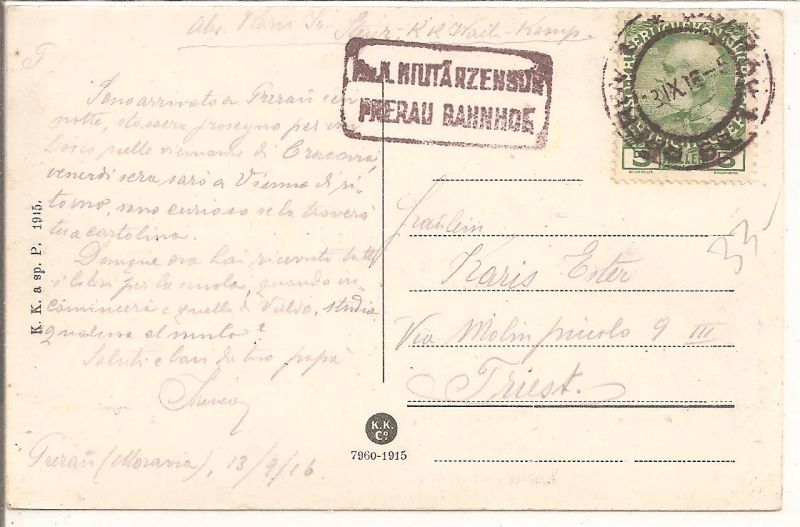 Abs. Karis
K.K.
K.u.K. MILITÄRZENSUR
PRERAU BAHNHOF
13 IX 16
5 5
Sono arrivato a Prerau
notte, stassera proseguo per
bosco nelle vicinanze di Cracovia,
venerdi sera sarò a Vienna di ri-
torno, sono curioso se la troverò
tua cartolina.
Dunque ora hai ricevuto tutti
i libri per la scuola, quando in-
comincerà e quella di
qualcuno al
Saluti e baci da tuo papà
Prerau (Moravia), 13/9/16
K. K. a sp. P. 1915.
Fräulein
Karis Ester
Via Molin piccolo 9 III
Triest.
33
K.K.
Co.
7960-1915